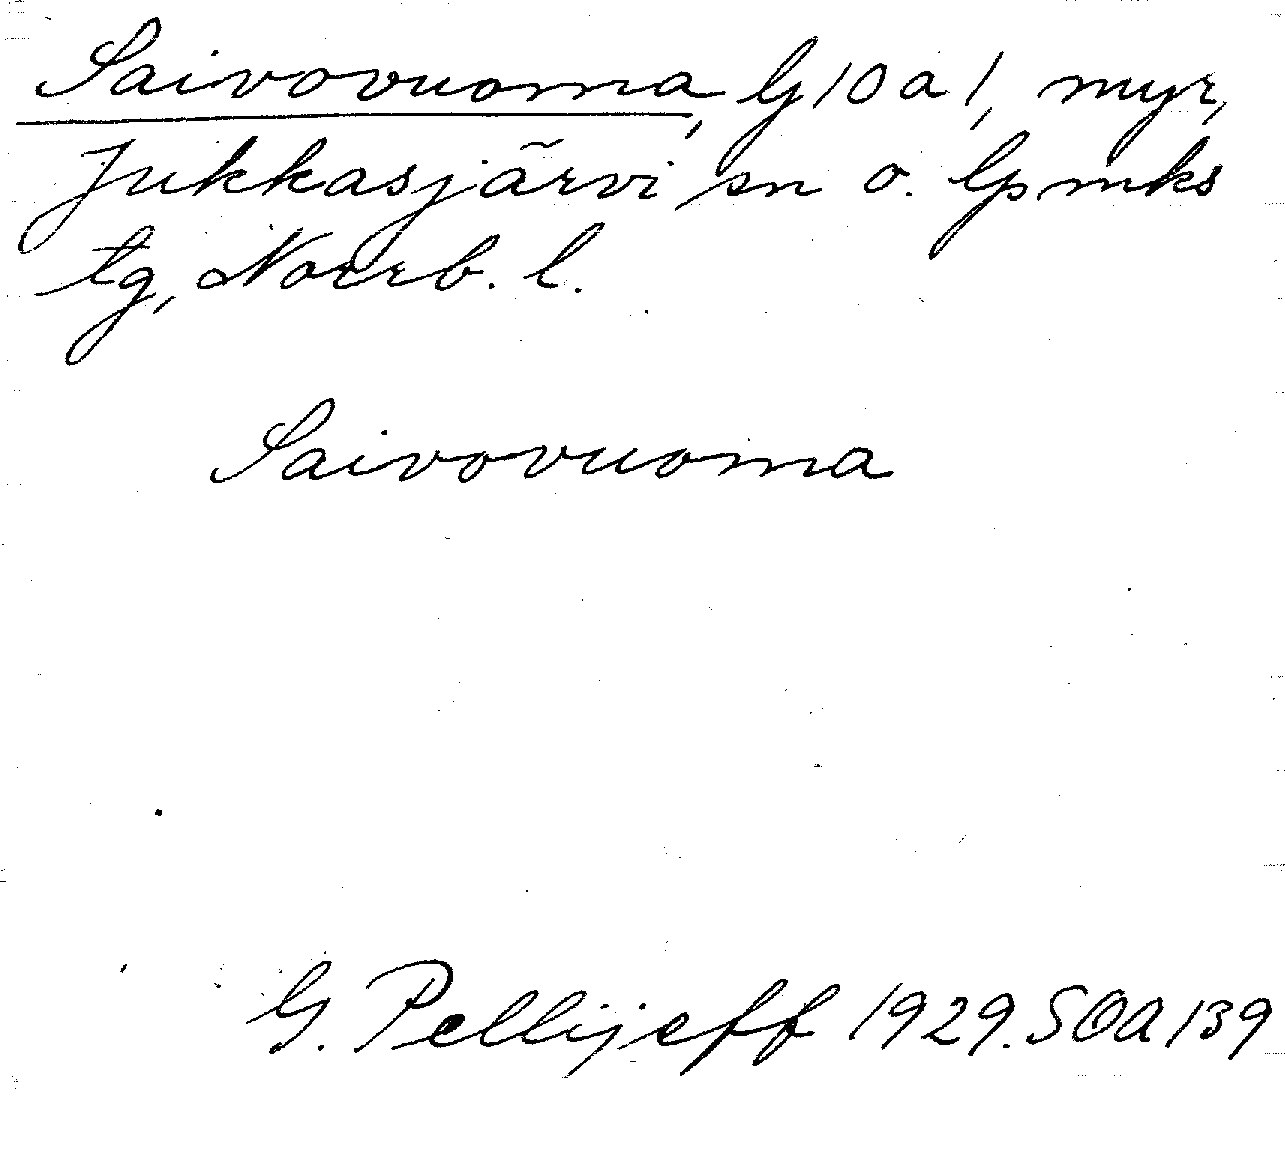 Saivovuoma, G 10 a 1, myr,
Jukkasjärvi sn o. lpmks
tg, Norrb. l.
Saivovuoma
G. Pellijeff 1929. SOA 139